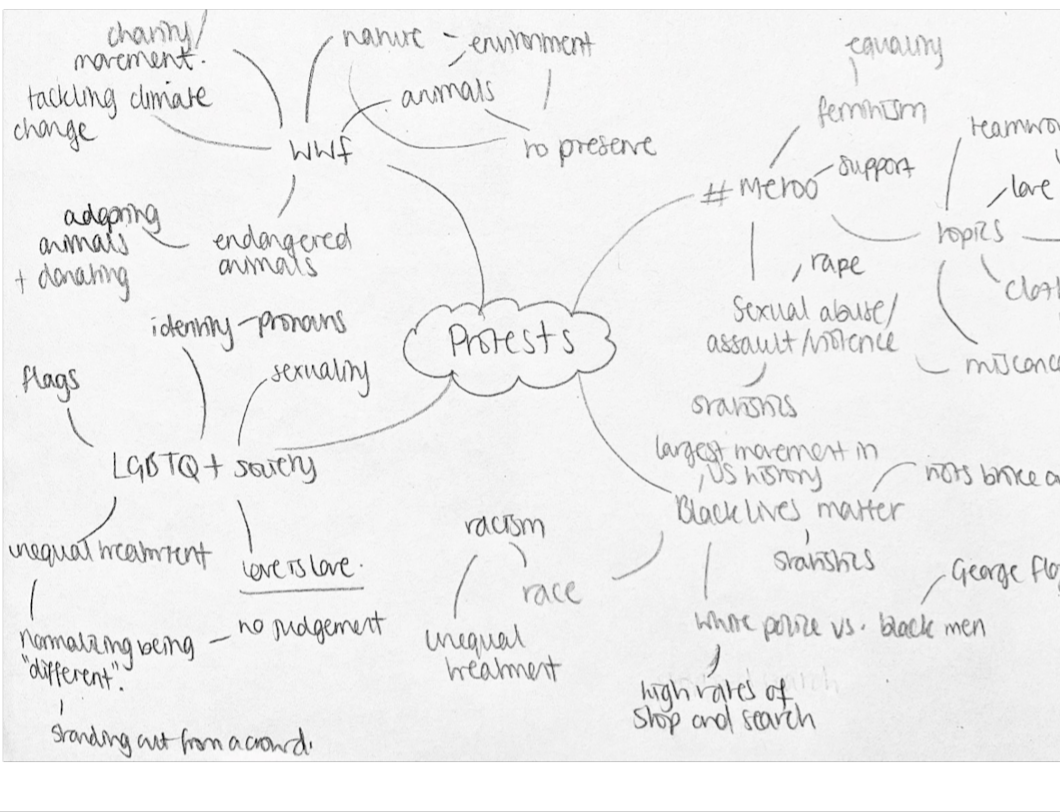 charity/
movement.
tackling climate
change
nature - environment
animals
to preserve
WWf
adopting
animals
+ donating
endangered
animals
equality
feminism
support
# Metoo
love
topics
rape
sexual abuse/
assault/violence
statistics
Protests
identity - pronouns
sexuality
flags
LGBTQ+ society
unequal treatment
love is love.
normalizing being
"different".
no judgement
standing out from a crowd.
largest movement in
US history
Black lives matter
statistics
racism
race
unequal
treatment
white police vs. black men
George
high rates of
stop and search